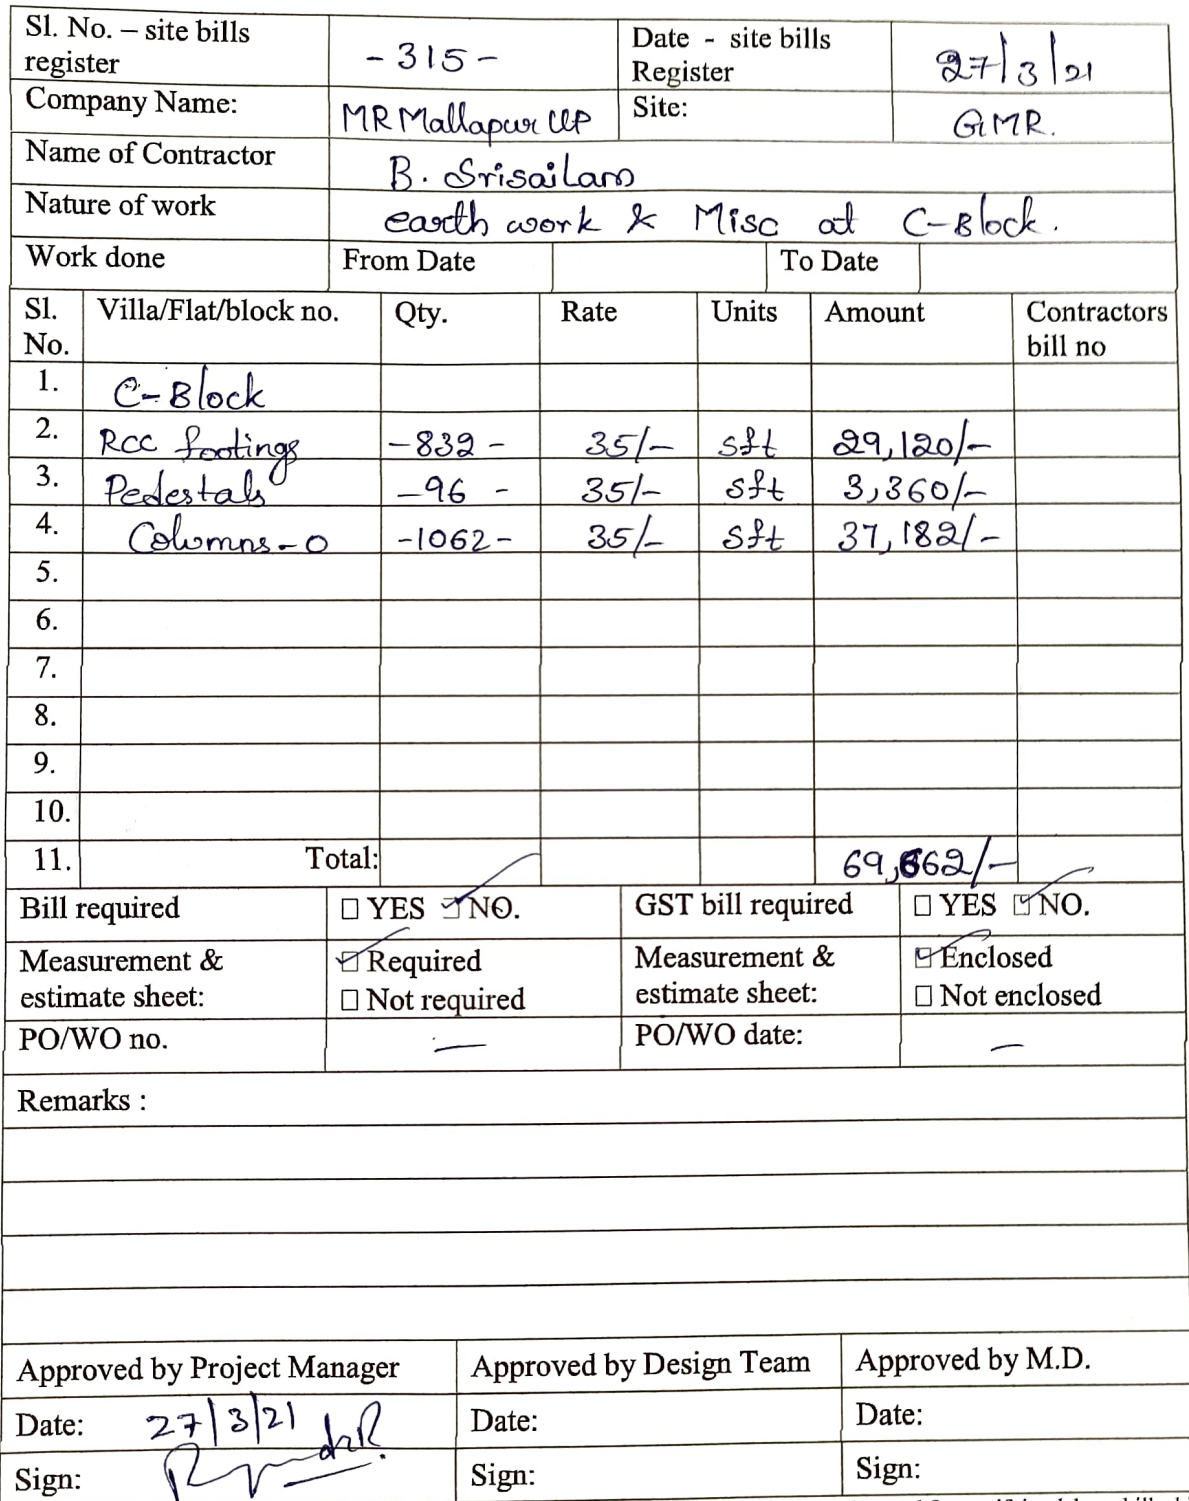 Sl. No. – site bills register -315- Date - site bills Register 27/3/21
Company Name: MR Mallapur LLP Site: GMR.
Name of Contractor B. Srisailam
Nature of work earth work & Misc at C-Block.
Work done From Date To Date
Sl. No. Villa/Flat/block no. Qty. Rate Units Amount Contractors bill no
1. C-Block
2. RCC footings -832- 35/- sft 29,120/-
3. Pedestals -96- 35/- sft 3,360/-
4. Columns-0 -1062- 35/- sft 37,182/-
5.
6.
7.
8.
9.
10.
11. Total: 69,662/-
Bill required ☐ YES ☑ NO. GST bill required ☐ YES ☑ NO.
Measurement & estimate sheet: ☑ Required Measurement & estimate sheet: ☑ Enclosed
☐ Not required ☐ Not enclosed
PO/WO no. — PO/WO date: —
Remarks :
Approved by Project Manager Approved by Design Team Approved by M.D.
Date: 27/3/21 Date: Date:
Sign: Sign: Sign: